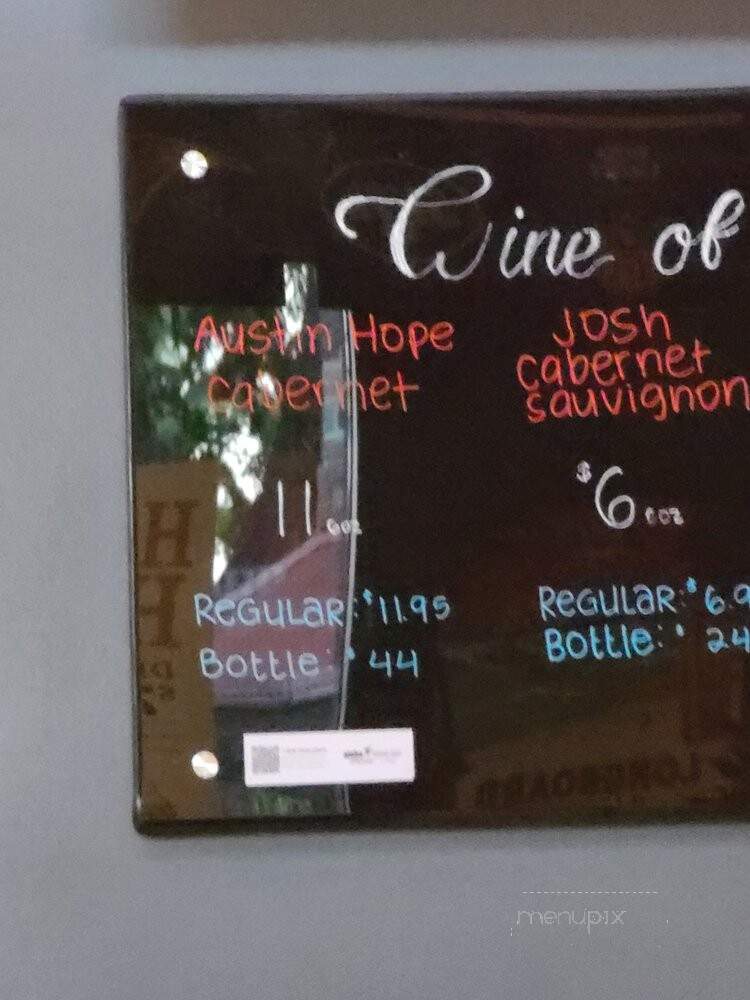 Wine of
Austin Hope
cabernet
Josh
cabernet
sauvignon
11 6oz
$6 6oz
Regular: $11.95
Bottle: $44
Regular: $6.9
Bottle: $24
H
H
menupix